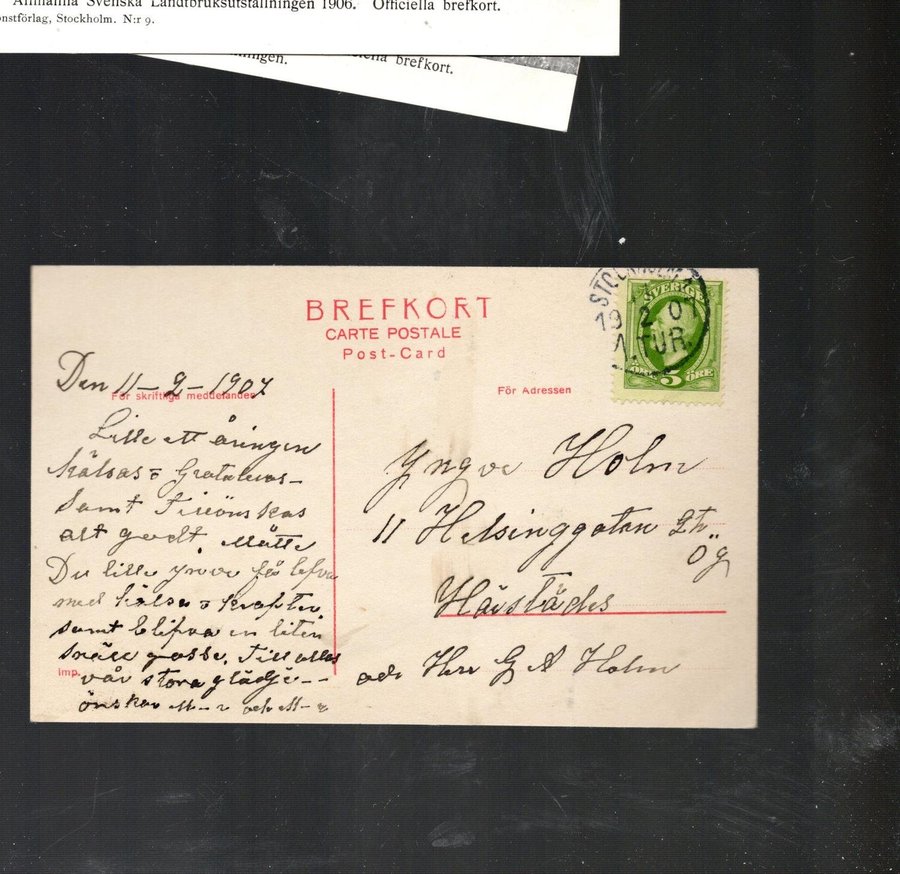 Allmänna Svenska Landtbruksutställningen 1906. Officiella brefkort.
onstförlag, Stockholm. N:r 9.
ningen. ciella brefkort.
BREFKORT
CARTE POSTALE
Post-Card
STOCKHOLM
19 2 07
1.TUR.
SVERIGE
5 ÖRE
Den 11-2-1907
För skriftliga meddelanden
För Adressen
Lille ett åringen
hälsas o Gratuleras
samt Tillönskas
alt godt Måtte
Du lille yngve få lefva
med hälsa o krafter
samt blifva en liten
snäll gosse. Till allas
vår stora glädje
önskar och
imp.
Yngve Holm
11 Helsinggatan 2 tr
ö g
Härstädes
adr Herr G A Holm